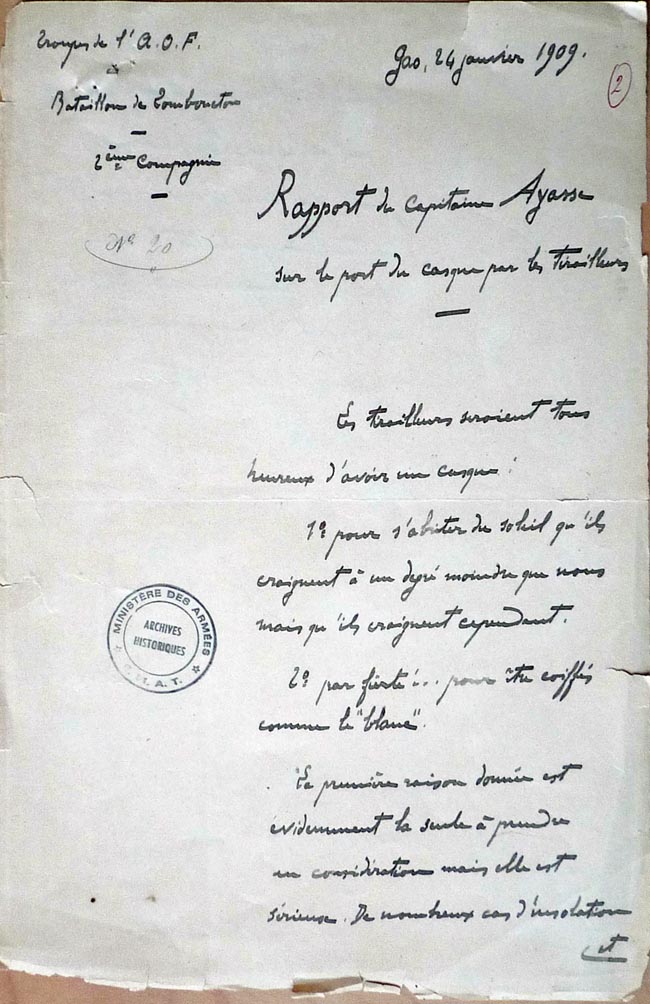 Troupes de l'A.O.F.
Gao, 24 janvier 1909.
2
Bataillon de Tombouctou
2ème Compagnie
N° 20
Rapport du Capitaine Ayasse
sur le port du casque par les tirailleurs
Les tirailleurs seraient tous
heureux d'avoir un casque :
1º pour s'abriter du soleil qu'ils
craignent à un degré moindre que nous
mais qu'ils craignent cependant.
2º par fierté !... pour être coiffés
comme le "blanc".
La première raison donnée est
évidemment la seule à prendre
en considération mais elle est
sérieuse. De nombreux cas d'insolation
et
MINISTÈRE DES ARMÉES
ARCHIVES
HISTORIQUES
H.A.T.